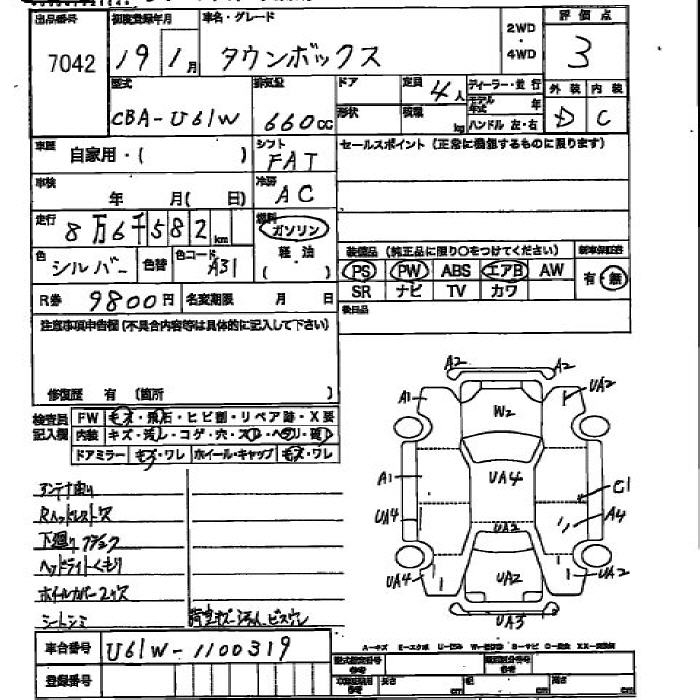 出品番号 初度登録年月 車名・グレード 2WD・4WD 評価点
7042 19 1月 タウンボックス 3
型式 排気量 ドア 定員 4人 ディーラー・並行 外装 内装
CBA-U61W 660cc 形状 積載 kg モデル年式 年 D C
ハンドル 左・右
車歴 自家用・( ) シフト FAT セールスポイント (正常に機能するものに限ります)
車検 年 月( 日) 冷房 AC
走行 8万6千582km 燃料 ガソリン
軽油
( ・ )
装備品 (純正品に限り○をつけてください) 新車保証書
色 シルバー 色替 色コード A31 PS PW ABS エアB AW 有・無
R券 9800円 名変期限 月 日 SR ナビ TV カワ
注意事項申告欄(不具合内容等は具体的に記入して下さい) 後日品
修復歴 有 (箇所 )
検査員記入欄 FW キズ・飛石・ヒビ割・リペア跡・X要
内装 キズ・汚レ・コゲ・穴・スレ・ヘタリ・破レ
ドアミラー キズ・ワレ ホイール・キャップ キズ・ワレ
A2 A2
A1 UA2
W2
A1 UA4 C1
UA4 UA2 A4
UA4 UA2 UA2
UA3
アンテナ曲り
Rヘッドレスト欠
下廻り
ヘッドライトくもり
ホイルカバー2ヶ欠
シートシミ
車台番号 U61W-1100319
登録番号